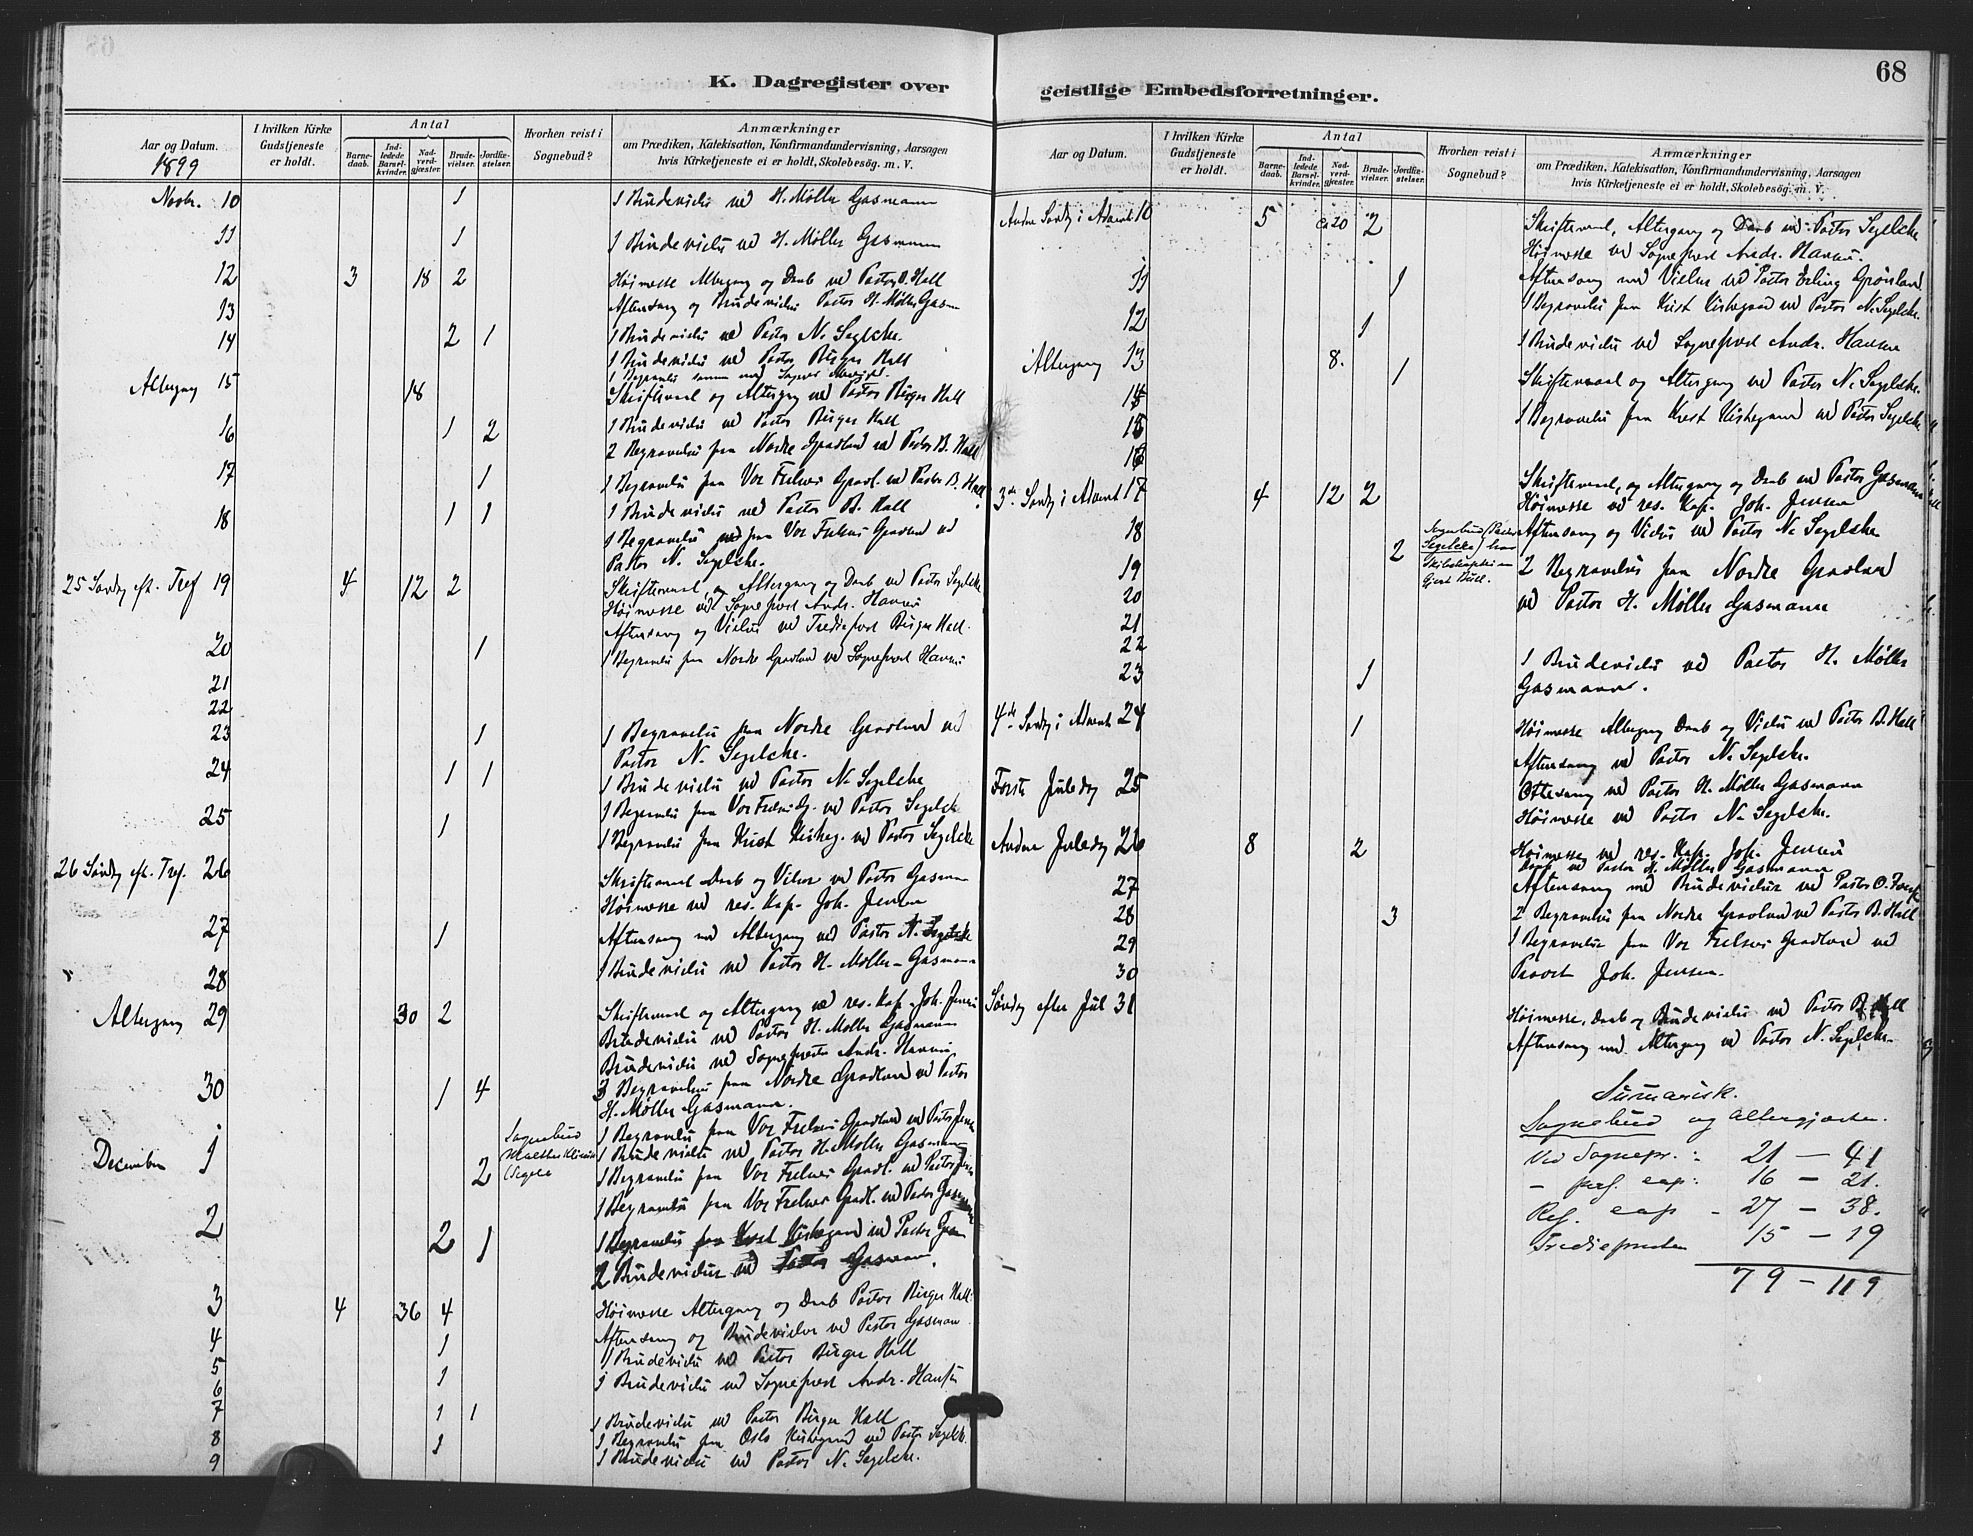 68
K. Dagregister over geistlige Embedsforretninger.
Aar og Datum.
1899
I hvilken Kirke Gudstjeneste er holdt.
Antal
Barnedaab.
Indledede Barselkvinder.
Nadverdgjæster.
Brudevielser.
Jordfæstelser.
Hvorhen reist i Sognebud?
Anmærkninger
om Prædiken, Katekisation, Konfirmandundervisning, Aarsagen
hvis Kirketjeneste ei er holdt, Skolebesøg. m. V.
Novbr. 10 1 1 Brudevielse ved H. Møller Gasmann
11 1 1 Brudevielse ved H. Møller Gasmann
12 3 18 2 Høimesse Altergang og Daab ved Pastor B. Hall
13 Aftensang og Brudevielse Pastor H. Møller Gasm
14 2 1 1 Brudevielse ved Pastor N. Segelcke.
1 Brudevielse ved Pastor Birger Hall
Altergang 15 18 Skriftemaal og Altergang ved Pastor Birger Hall
16 1 2 1 Brudevielse ved Pastor Birger Hall
2 Begravelser fra Nordre Gravlund ved Pastor B. Hall
17 1 1 Begravelse fra Vor Frelsers Gravl. ved Pastor B. Hall
18 1 1 1 Brudevielse ved Pastor B. Hall
1 Begravelse fra Vor Frelsers Gravlund ved
Pastor N. Segelcke.
25 Søndag eft. Tref 19 4 12 2 Skriftemaal, og Altergang og Daab ved Pastor Segelcke
Høimesse ved Sogneprest Andr. Hansen
Aftensang og Vielse ved Tredieprest Birger Hall.
20 1 1 Begravelse fra Nordre Gravlund ved Sogneprest Hansen
21
22
23 1 1 Begravelse fra Nordre Gravlund ved
Pastor N. Segelcke.
24 1 1 1 Brudevielse ved Pastor N. Segelcke
1 Begravelse fra Vor Frelsers G. ved Pastor Segelcke
25 1 1 Begravelse fra Krist Kirkeg. ved Pastor Segelcke
26 Søndag eft. Tref. 26 Skriftemaal Daab og Vielser ved Pastor Gasmann
Høimesse ved res. Kap. Joh. Jensen
27 1 Aftensang med Altergang ved Pastor N. Segelcke
1 Brudevielse ved Pastor H. Møller-Gasmann
28
Altergang 29 30 2 Skriftemaal og Altergang ved res. Kap. Joh. Jensen
Brudevielse ved Pastor H. Møller Gasmann
Brudevielse ved Sogneprest Andr. Hansen
30 1 4 3 Begravelser fra Nordre Gravlund ved Pastor
H. Møller Gasmann.
1 Begravelse fra Vor Frelsers Gravlund ved Pastor Jensen
December 1 2 Sognebud 1 Brudevielse ved Pastor H. Møller Gasmann
1 Begravelse fra Vor Frelsers Gravl. ved Pastor Jensen
1 Begravelse fra Vor Frelsers Gravl. ved Pastor Gasmann
2 2 1 1 Begravelse fra Krist Kirkegaard ved Pastor Gasm
2 Brudevielser ved Pastor Gasmann.
3 4 36 4 Høimesse Altergang og Daab Pastor Birger Hall.
4 1 Aftensang og Brudevielser ved Pastor Gasmann
5 1 Brudevielse ved Pastor Birger Hall
6 1 1 Brudevielse ved Sogneprest Andr. Hansen
7 1 1 1 Brudevielse ved Pastor Birger Hall
8 1 1 Begravelse fra Oslo Kirkegaard ved Pastor Segelck.
9 1 Brudevielse ved Pastor N. Segelcke.
Aar og Datum.
I hvilken Kirke Gudstjeneste er holdt.
Antal
Barnedaab.
Indledede Barselkvinder.
Nadverdgjæster.
Brudevielser.
Jordfæstelser.
Hvorhen reist i Sognebud?
Anmærkninger
om Prædiken, Katekisation, Konfirmandundervisning, Aarsagen
hvis Kirketjeneste ei er holdt, Skolebesøg. m. V.
Anden Søndag i Advent 10 5 ca 20 2 Skriftemaal, Altergang og Daab ved Pastor Segelcke
Høimesse ved Sogneprest Andr. Hansen.
11 1 Aftensang med Vielser ved Pastor Erling Grønland
1 Begravelse fra Krist Kirkegaard ved Pastor N. Segelcke.
12 1 1 Brudevielse ved Sogneprest Andr. Hansen
Altergang 13 8. Skriftemaal og Altergang ved Pastor N. Segelcke.
14 1 1 Begravelse fra Krist Kirkegaard ved Pastor Segelcke
15
16
3de Søndag i Advent 17 4 12 2 Skriftemaal, og Altergang og Daab ved Pastor Gasmann
Høimesse ved res. Kap. Joh. Jensen
18 Aftensang og Vielse ved Pastor N. Segelcke
19 2 Sognebud (Pastor Segelcke) hos 2 Begravelser fra Nordre Gravlund
20 ved Pastor H. Møller Gasmann
21
22
23 1 1 Brudevielse ved Pastor H. Møller
Gasmann.
4de Søndag i Advent 24 1 Høimesse Altergang Daab og Vielse ved Pastor B. Hall
Aftensang ved Pastor N. Segelcke.
Første Juledag 25 Ottesang ved Pastor H. Møller Gasmann
Høimesse ved Pastor N. Segelcke.
Anden Juledag 26 8 2 Høimesse ved res. Kap. Joh. Jensen
Daab ved Pastor H. Møller Gasmann
27 Aftensang med Brudevielser ved Pastor O.
28 3 2 Begravelser fra Nordre Gravlund ved Pastor B. Hall
29 1 Begravelse fra Vor Frelsers Gravlund ved
30 Provst Joh. Jensen.
Søndag efter Jul 31 Høimesse, Daab og Brudevielse ved Pastor B. Hall
Aftensang med Altergang ved Pastor N. Segelcke.
Summarisk.
Sognebud og altergjæster.
Ved Sognepr.: 21 — 41
— pers. cap: 16 — 21.
Res. cap — 27 — 38.
Tredieprester 15 — 19
79 — 119